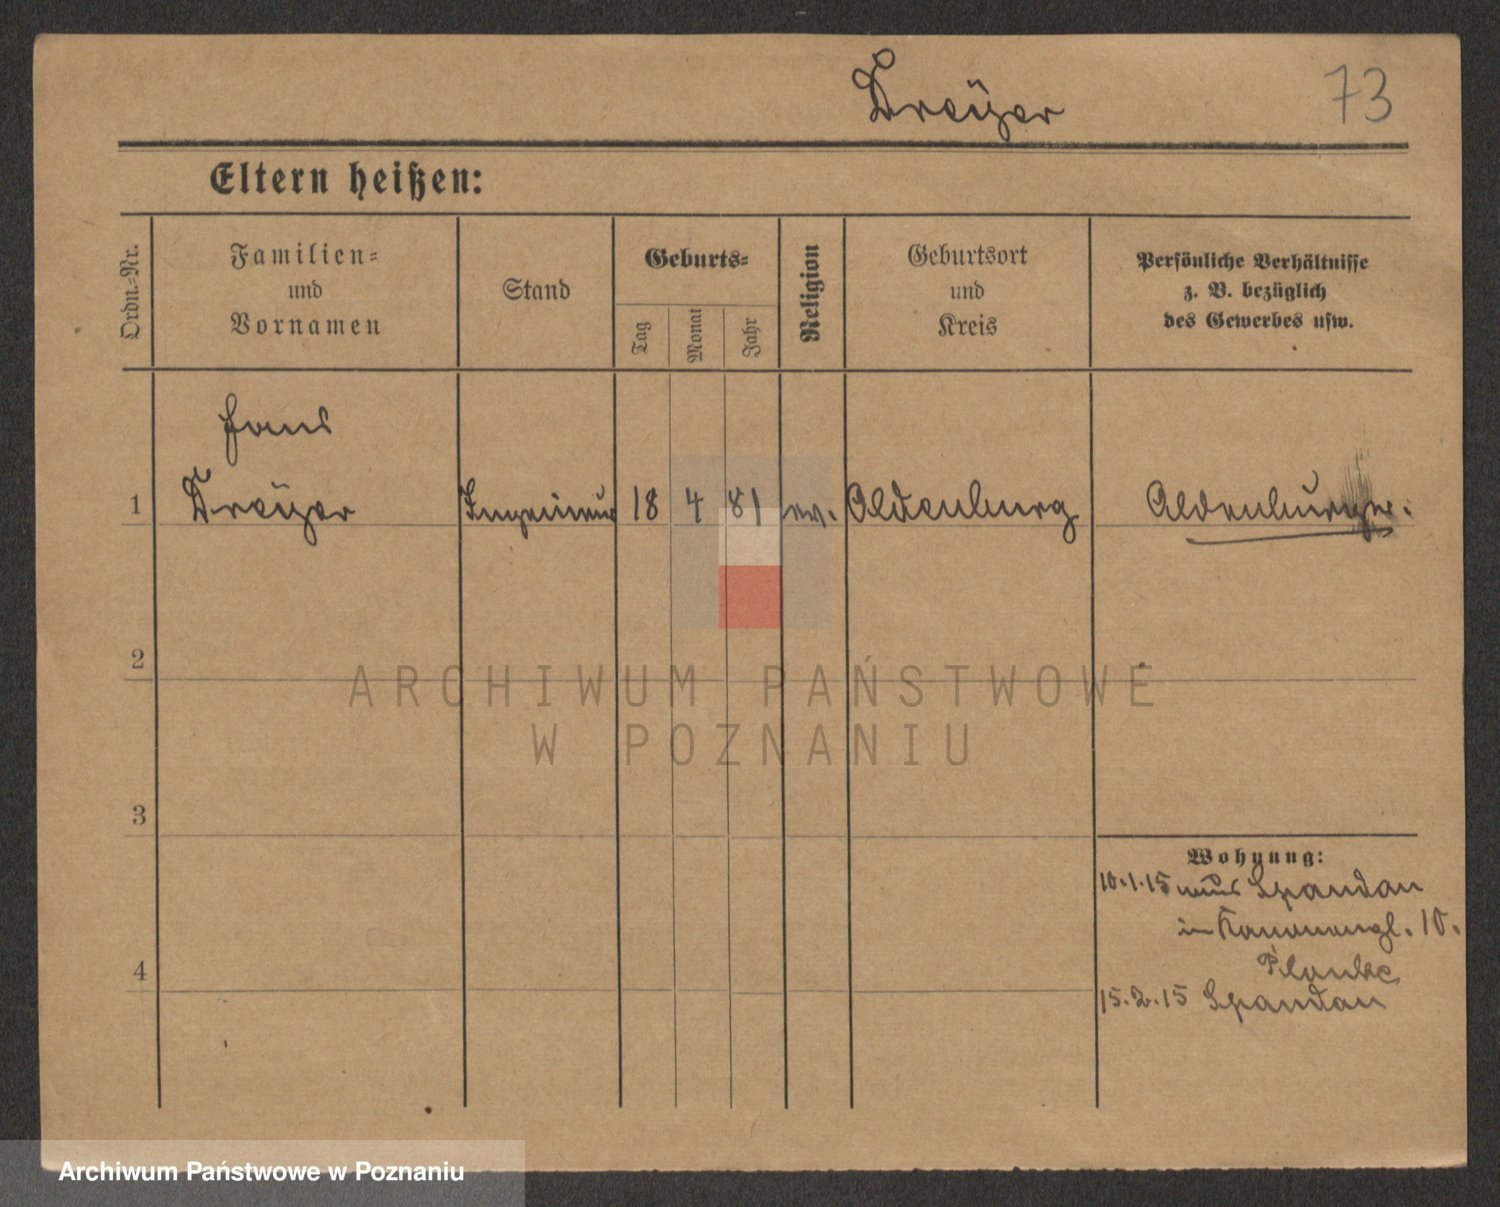 Dreÿer
73
Eltern heißen:
Ordn.-Nr.
Familien-
und
Vornamen
Stand
Geburts-
Tag
Monat
Jahr
Religion
Geburtsort
und
Kreis
Persönliche Verhältnisse
z. B. bezüglich
des Gewerbes usw.
Hans
1 Dreÿer Ingenieur 18 4 81 ev. Oldenburg Oldenburger.
2
ARCHIWUM PAŃSTWOWE
W POZNANIU
3
Wohnung:
10.1.15 aus Spandau
in Kanonenpl. 10.
Planke
4
15.2.15 Spandau
Archiwum Państwowe w Poznaniu